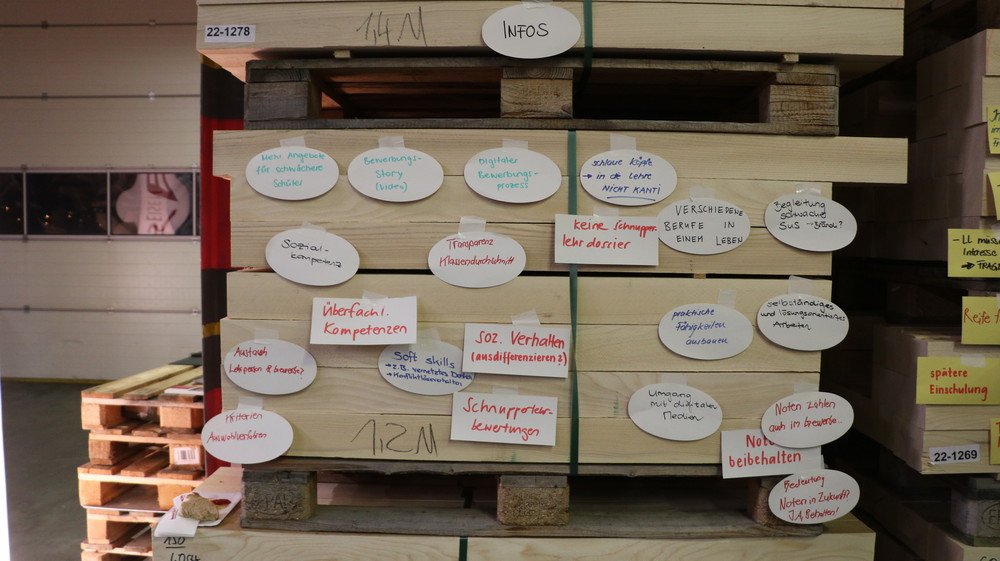 22-1278
1,4 M
INFOS
Mehr Angebote
für schwächere
Schüler
Bewerbungs-
Story
(Video)
Digitaler
Bewerbungs-
prozess
schlaue Köpfe
→ in die Lehre
NICHT KANTI
VERSCHIEDENE
BERUFE IN
EINEM LEBEN
Begleitung
schwache
SuS
Sozial-
kompetenz
Transparenz
Klassendurchschnitt
keine Schnupper-
lehrdossier
Überfachl.
Kompetenzen
Soz. Verhalten
(ausdifferenzieren?)
praktische
Fähigkeiten
ausbauen
selbständiges
und lösungsorientiertes
Arbeiten
Austausch
Lehrperson & Gewerbe?
Soft skills
→ z.B. vernetztes Denken
→ Konfliktlöseverhalten
Kriterien
Auswahlverfahren
Schnupperlehr-
bewertungen
Umgang
mit digitalen
Medien
Noten zählen
auch im Gewerbe...
Note
beibehalten
Bedeutung
Noten in Zukunft?
JA, Behalten!
1,2 M
- LL muss
Interesse
Reife
spätere
Einschulung
22-1269